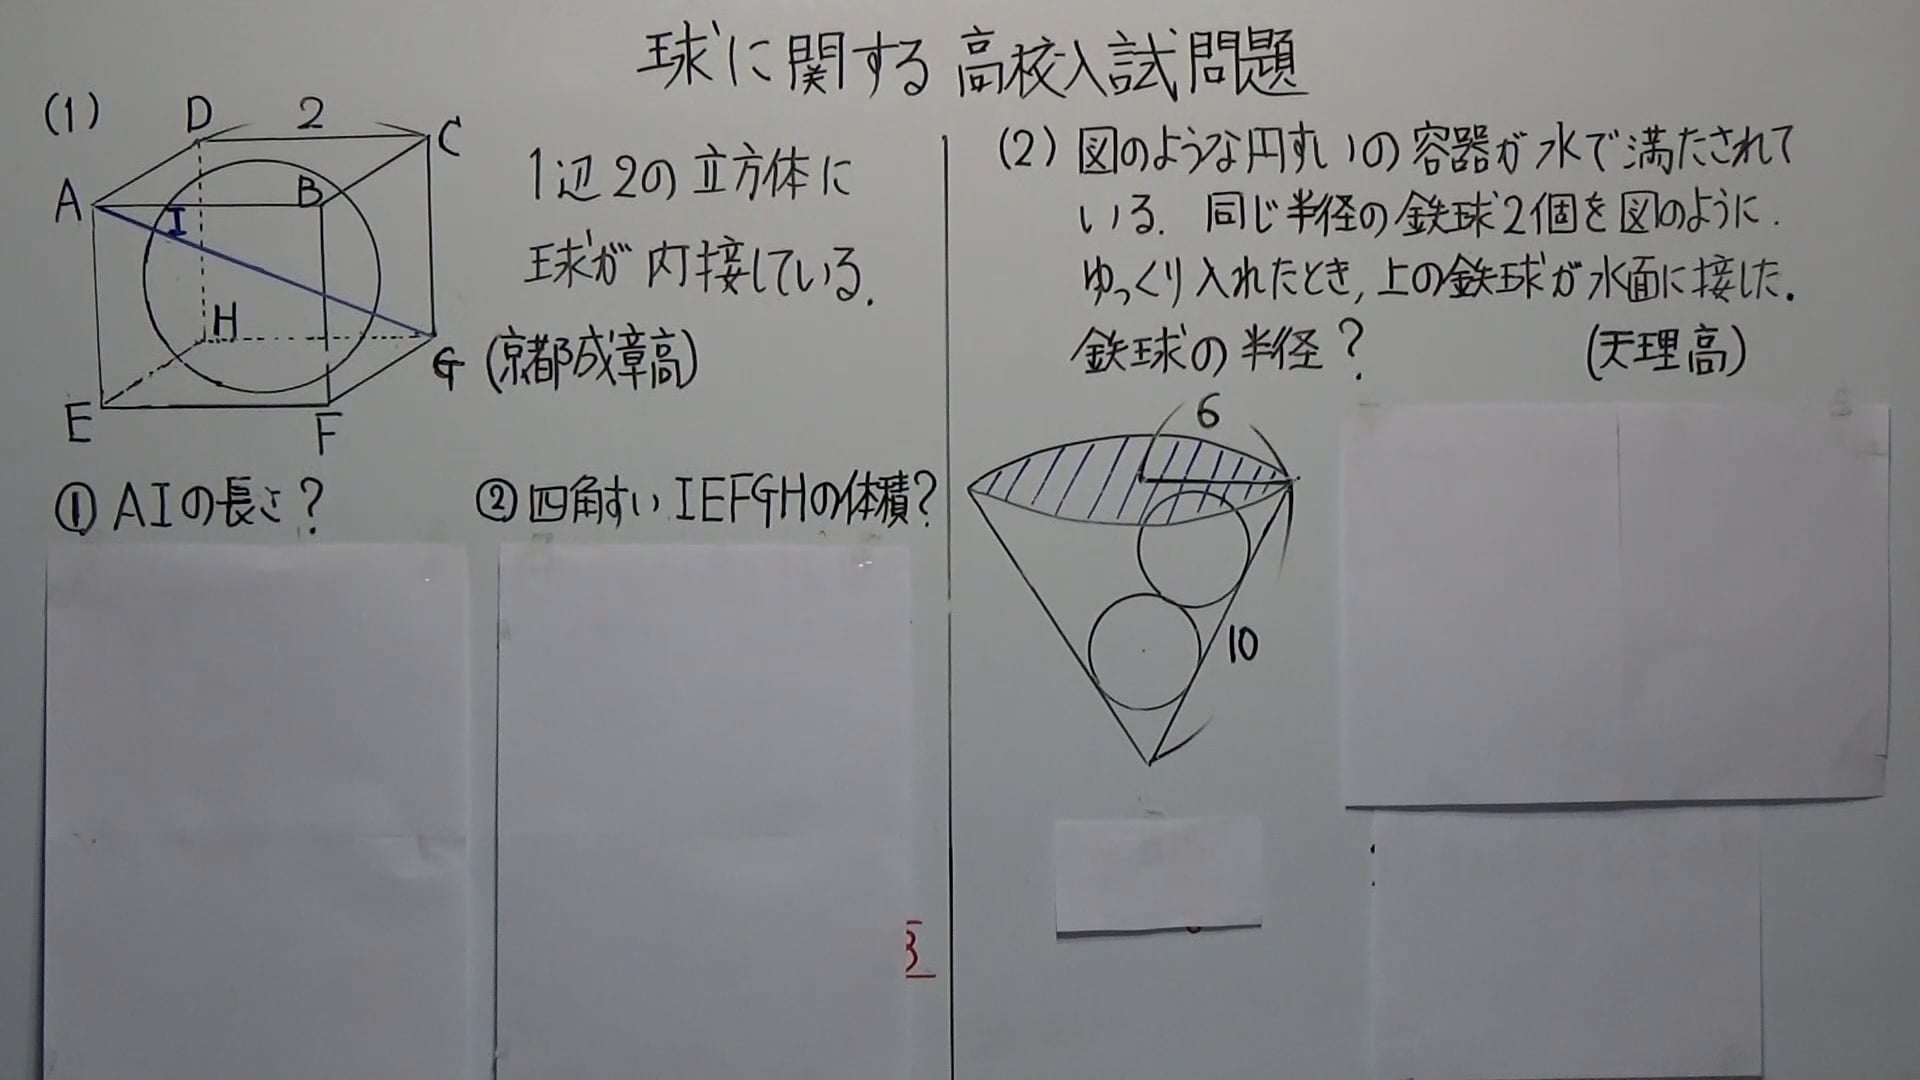 球に関する高校入試問題
(1)
D 2 C
A B
I
H
G
E F
1辺2の立方体に
球が内接している.
(京都成章高)
① AIの長さ?
② 四角すいIEFGHの体積?
(2) 図のような円すいの容器が水で満たされて
いる. 同じ半径の鉄球2個を図のように
ゆっくり入れたとき, 上の鉄球が水面に接した.
鉄球の半径? (天理高)
6
10